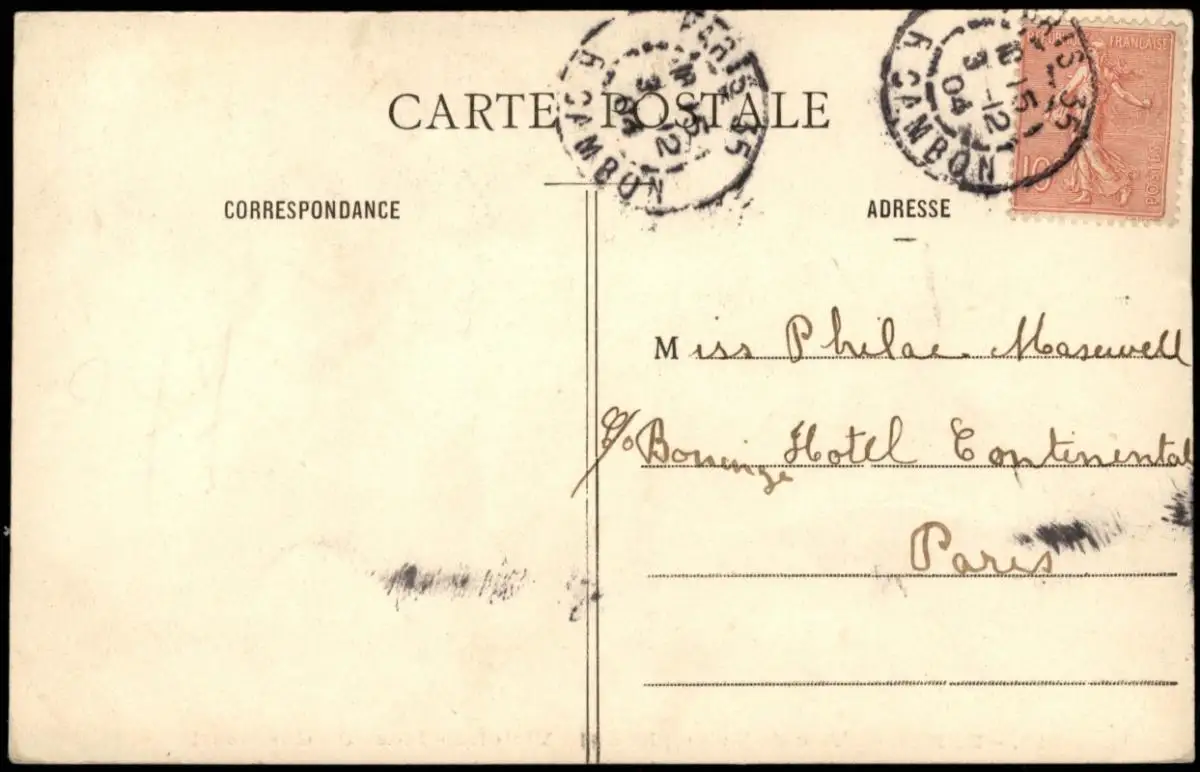 CARTE POSTALE
PARIS 35
R CAMBON
16 15
3 -12
04
PARIS 35
R CAMBON
16 15
3 -12
04
REPUBLIQUE FRANÇAISE
10c
POSTES
CORRESPONDANCE
ADRESSE
Miss Philae Maxwell
c/o Hotel Continental
Paris